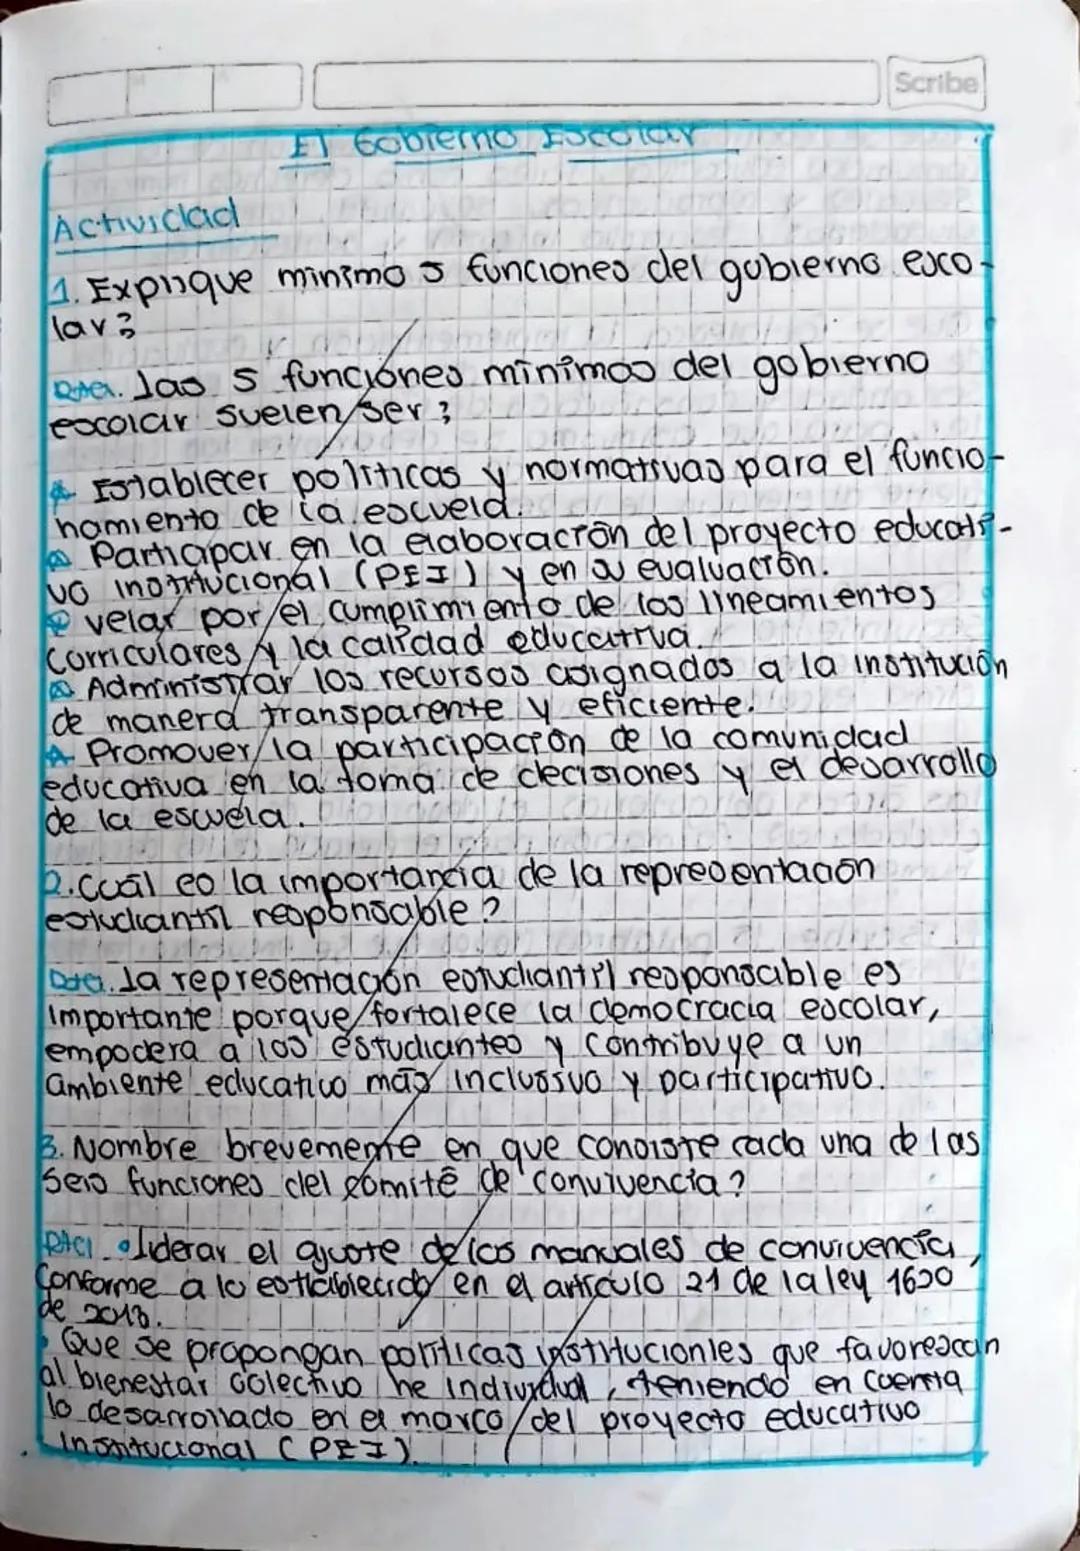 Scribe
El Gobierno Escolar
Actividad
1. Explique minimo 5 funciones del gobierno esco-
lar?
Rta. las 5 funciones mínimas del gobierno
escolar suelen ser;
Establecer políticas y normativas para el funcio-
namiento de la escuela.
Participar en la elaboración del proyecto educati-
vo institucional (PEI) y en su evaluación.
velar por el cumplimiento de los lineamientos
curriculares y la calidad educativa.
Administrar los recursos asignados a la institución
de manera transparente y eficiente.
Promover la participación de la comunidad
educativa en la toma de decisiones y el desarrollo
de la escuela.
2. Cuál es la importancia de la representación
estudiantil responsable?
Rta. la representación estudiantil responsable es
importante porque fortalece la democracia escolar,
empodera a los estudiantes y contribuye a un
ambiente educativo más inclusivo y participativo.
3. Nombre brevemente en que consiste cada una de las
seis funciones del comité de convivencia?
Rta. • liderar el ajuste de los manuales de convivencia,
conforme a lo establecido en el artículo 21 de la ley 1620
de 2013.
• Que se propongan políticas institucionles que favorescan
al bienestar colectivo he individual, teniendo en cuenta
lo desarrollado en el marco del proyecto educativo
institucional (PEI).